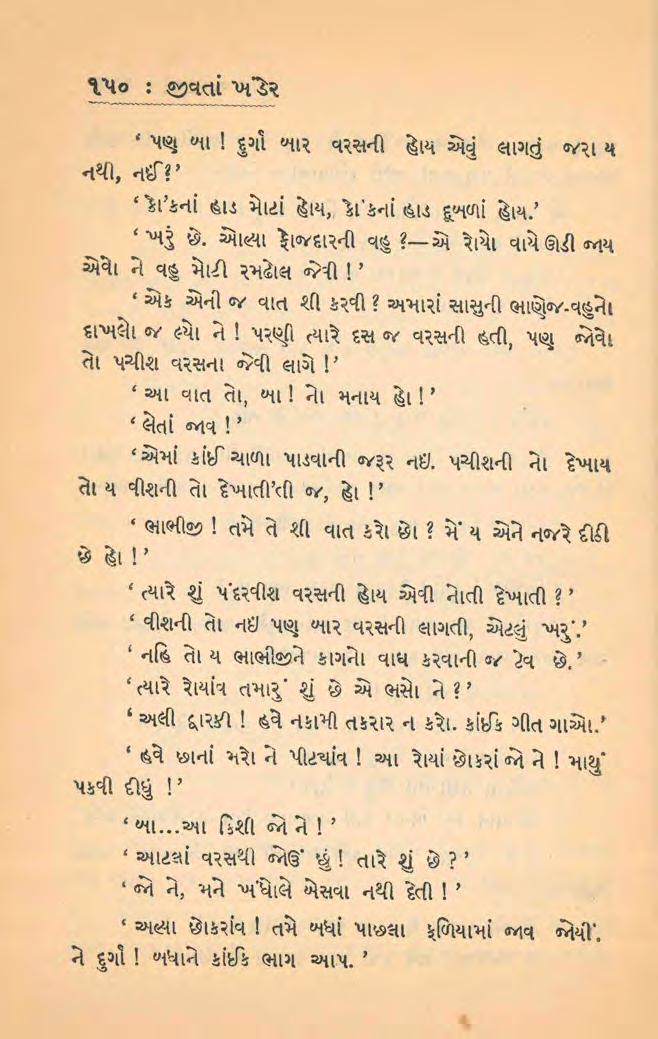 ૧૫૦ : જીવતાં ખંડેર
‘ પણ બા ! દુર્ગા બાર વરસની હોય એવું લાગતું જરા ય
નથી, નઈ?’
‘ કો’કનાં હાડ મોટાં હોય, કો’કનાં હાડ દૂબળાં હોય.’
‘ ખરું છે. ઓલ્યા ફોજદારની વહુ ?—એ રોયો વાયે ઊડી જાય
એવો ને વહુ મોટી રમઢોલ જેવી ! ’
‘ એક એની જ વાત શી કરવી ? અમારાં સાસુની ભાણેજ-વહુનો
દાખલો જ લ્યો ને ! પરણી ત્યારે દસ જ વરસની હતી, પણ જોવો
તો પચીશ વરસના જેવી લાગે !’
‘ આ વાત તો, બા ! નો મનાય હો ! ’
‘ લેતાં જાવ ! ’
‘ એમાં કાંઈ ચાળા પાડવાની જરૂર નઇ. પચીશની નો દેખાય
તો ય વીશની તો દેખાતી’તી જ, હો ! ’
‘ ભાભીજી ! તમે તે શી વાત કરો છો ? મેં ય એને નજરે દીઠી
છે હો ! ’
‘ ત્યારે શું પંદરવીશ વરસની હોય એવી નોતી દેખાતી ? ’
‘ વીશની તો નઇ પણ બાર વરસની લાગતી, એટલું ખરું.’
‘ નહિ તો ય ભાભીજીને કાગનો વાઘ કરવાની જ ટેવ છે. ’
‘ ત્યારે રોયાંવ તમારું શું છે એ ભસો ને ? ’
‘ અલી દ્વારકી ! હવે નકામી તકરાર ન કરો. કાંઈક ગીત ગાઓ.’
‘ હવે છાનાં મરો ને પીટયાંવ ! આ રોયાં છોકરાં જો ને ! માથું
પકવી દીધું !’
‘ બા...આ કિશી જો ને ! ’
‘ આટલાં વરસથી જોઉં છું ! તારે શું છે ? ’
‘ જો ને, મને ખંધોલે બેસવા નથી દેતી ! ’
‘ અલ્યા છોકરાંવ ! તમે બધાં પાછલા ફળિયામાં જાવ જોયીં.
ને દુર્ગા ! બધાને કાંઈક ભાગ આપ. ’